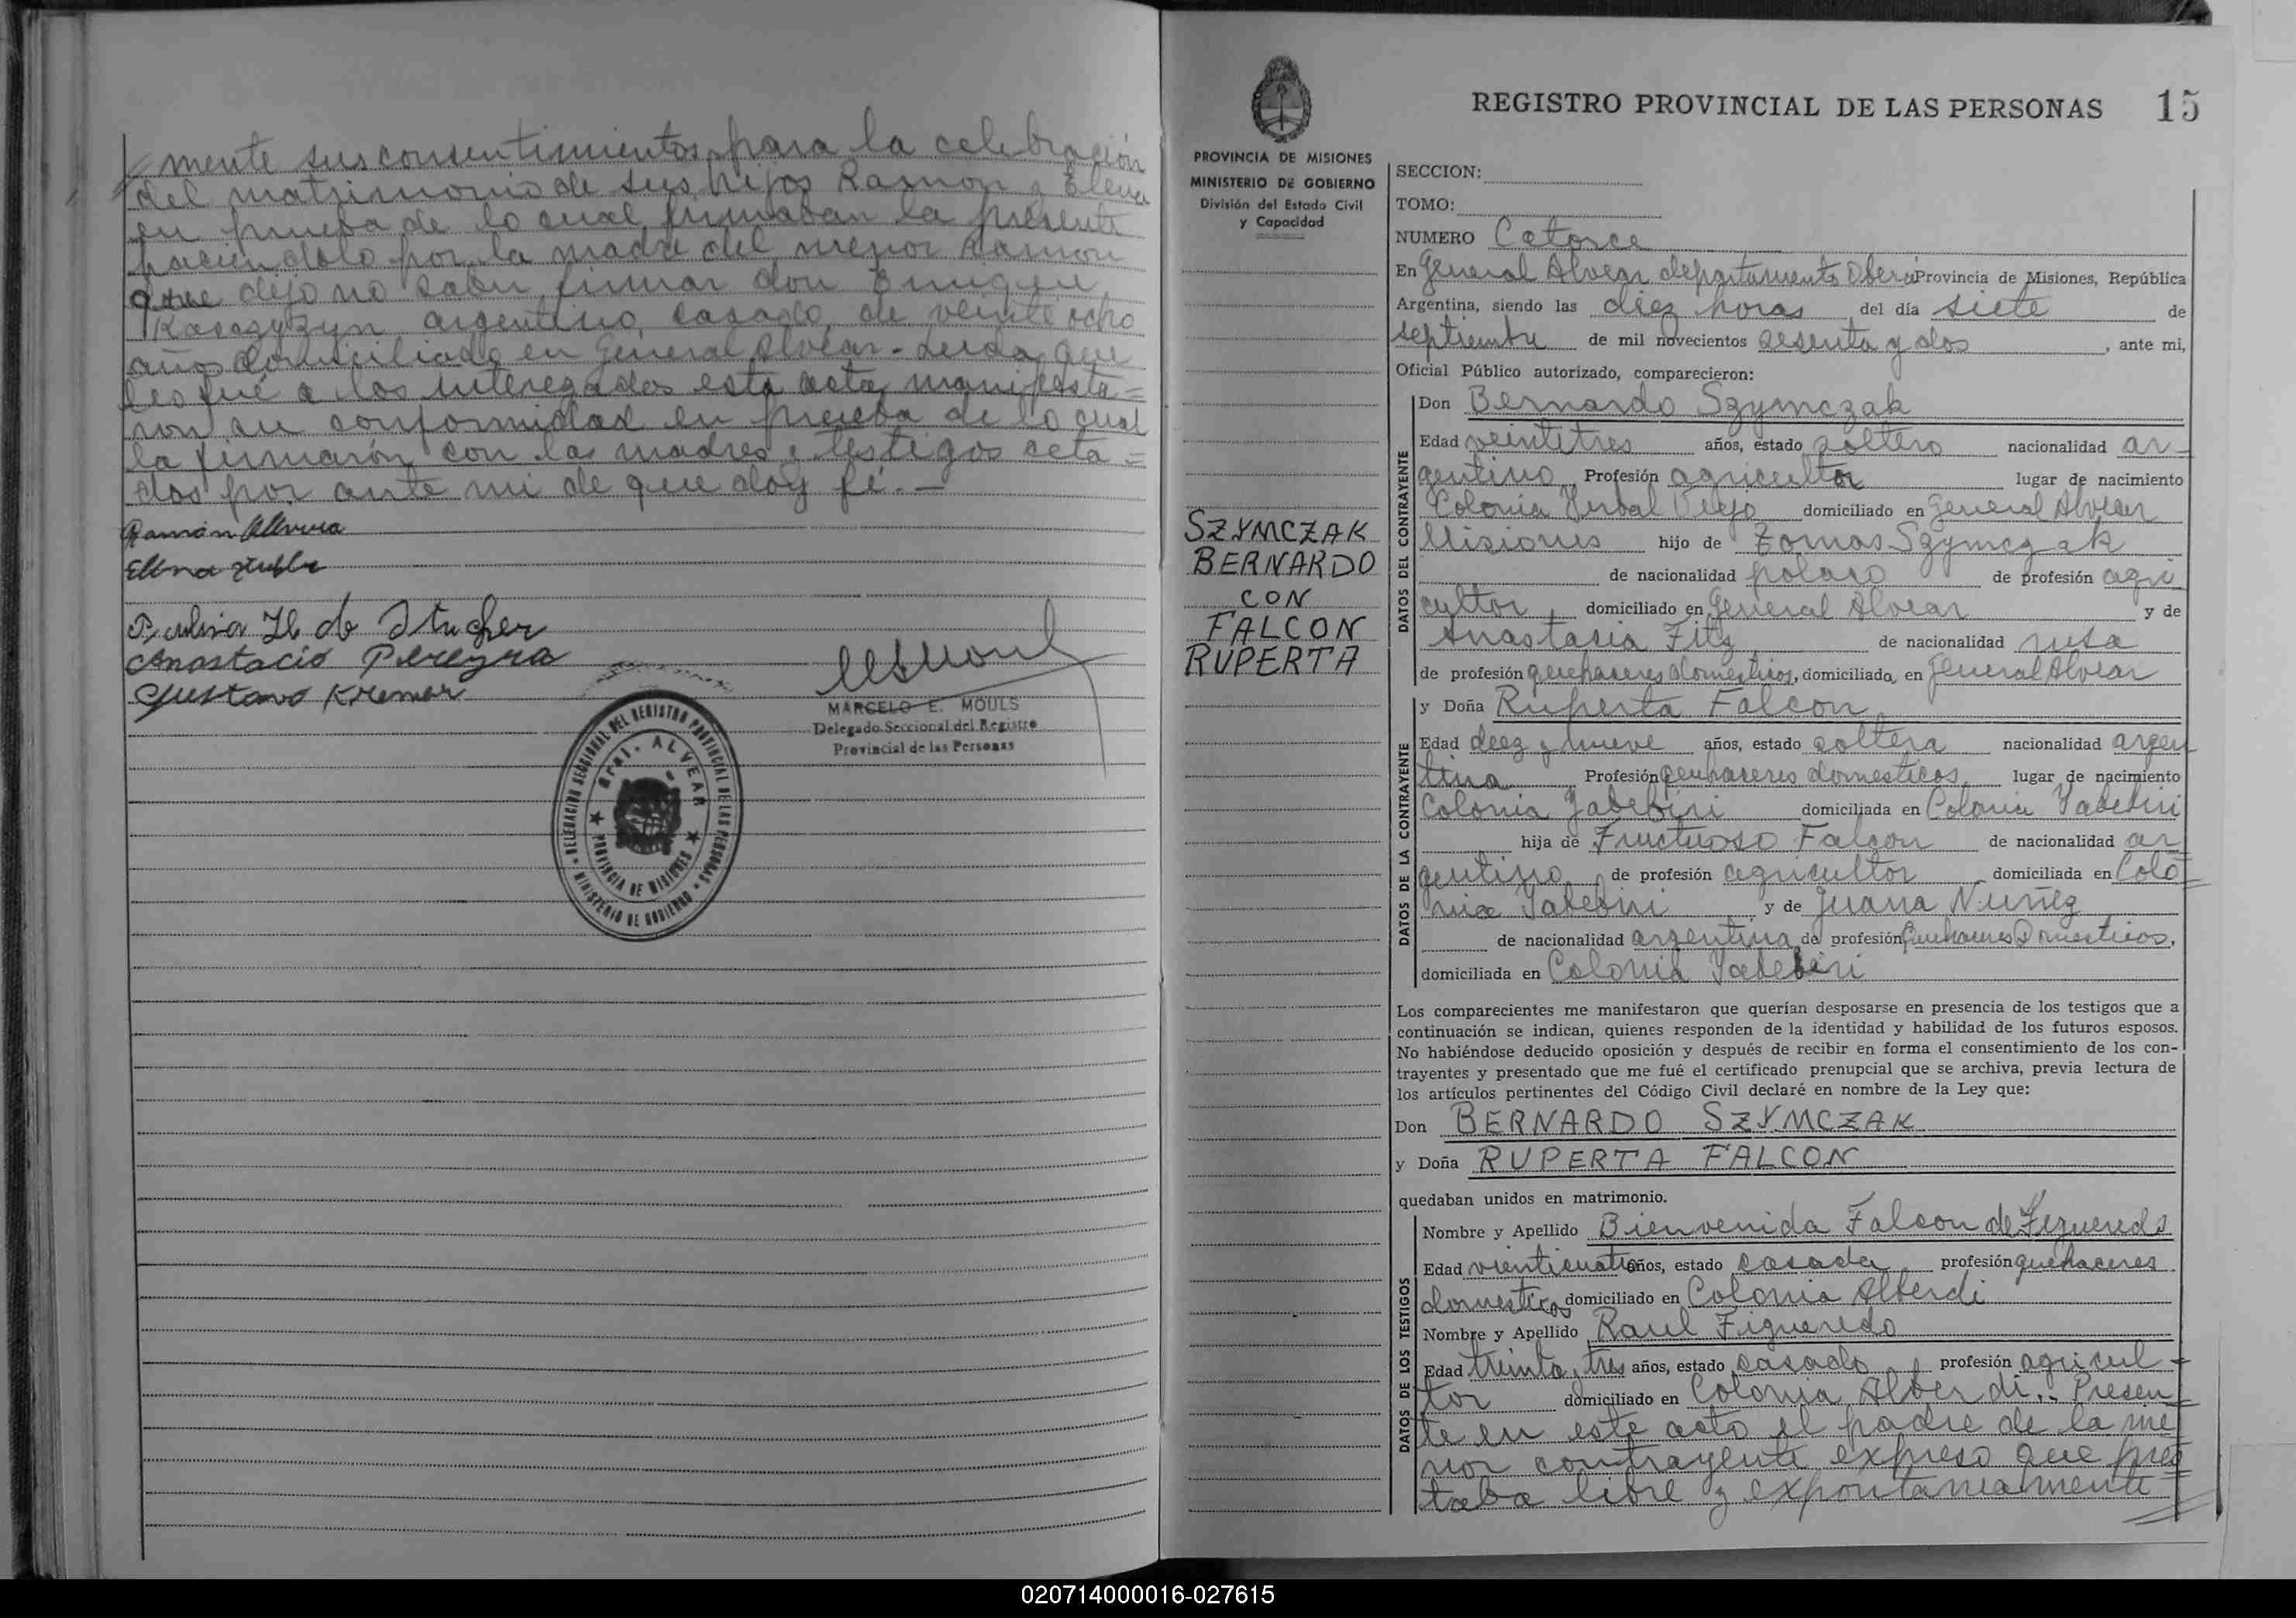 mente sus consentimientos para la celebración
del matrimonio de sus hijos Ramon y Elena
en prueba de lo cual firmaban la presente
haciendolo por la madre del menor Ramon
que dijo no saber firmar don Enrique
argentino, casado, de veinte ocho
años domiciliado en General Alvear. Leida que
les fué a los interezados esta acta manifesta=
ron su conformidad en prueba de lo cual
la firmarón con las madres y testigos cita=
dos por ante mi de que doy fé.—
Ramón
Elena
de
Anastacio Pereyra
Gustavo Kremer
MARCELO E. MOULS
Delegado Seccional del Registro
Provincial de las Personas
DELEGACION SECCIONAL DEL REGISTRO PROVINCIAL DE LAS PERSONAS
Gral. ALVEAR
PROVINCIA DE MISIONES
MINISTERIO DE GOBIERNO
PROVINCIA DE MISIONES
MINISTERIO DE GOBIERNO
División del Estado Civil
y Capacidad
SZYMCZAK
BERNARDO
CON
FALCON
RUPERTA
REGISTRO PROVINCIAL DE LAS PERSONAS 15
SECCION:
TOMO:
NUMERO Catorce
En General Alvear departamento Oberá Provincia de Misiones, República
Argentina, siendo las diez horas del día siete de
septiembre de mil novecientos sesenta y dos, ante mi,
Oficial Público autorizado, comparecieron:
DATOS DEL CONTRAYENTE
Don Bernardo Szymczak
Edad veintitres años, estado soltero nacionalidad ar-
gentino Profesión agricultor lugar de nacimiento
Colonia Yerbal Viejo domiciliado en General Alvear
Misiones hijo de Tomas Szymczak
de nacionalidad polaco de profesión agri
cultor, domiciliado en General Alvear y de
Anastacia Fitz de nacionalidad rusa
de profesión quehaceres domesticos, domiciliada en General Alvear
DATOS DE LA CONTRAYENTE
y Doña Ruperta Falcon
Edad diez y nueve años, estado soltera nacionalidad argen
tina Profesión quehaceres domesticos lugar de nacimiento
Colonia Yabebiri domiciliada en Colonia Yabebiri
hija de Fructuoso Falcon de nacionalidad ar
gentino de profesión agricultor domiciliada en Colo
nia Yabebiri y de Juana Nuñez
de nacionalidad argentina de profesión Quehaceres Domesticos,
domiciliada en Colonia Yabebiri
Los comparecientes me manifestaron que querían desposarse en presencia de los testigos que a
continuación se indican, quienes responden de la identidad y habilidad de los futuros esposos.
No habiéndose deducido oposición y después de recibir en forma el consentimiento de los con-
trayentes y presentado que me fué el certificado prenupcial que se archiva, previa lectura de
los artículos pertinentes del Código Civil declaré en nombre de la Ley que:
Don BERNARDO SZYMCZAK
y Doña RUPERTA FALCON
quedaban unidos en matrimonio.
DATOS DE LOS TESTIGOS
Nombre y Apellido Bienvenida Falcon de Figueredo
Edad vienticuatro años, estado casada profesión quehaceres
domesticos domiciliado en Colonia Alberdi
Nombre y Apellido Raul Figueredo
Edad treinta y tres años, estado casado profesión agricul-
tor domiciliado en Colonia Alberdi.- Presen
te en este acto el padre de la me
nor contrayente expreso que pres
taba libre y expontaneamente
020714000016-027615